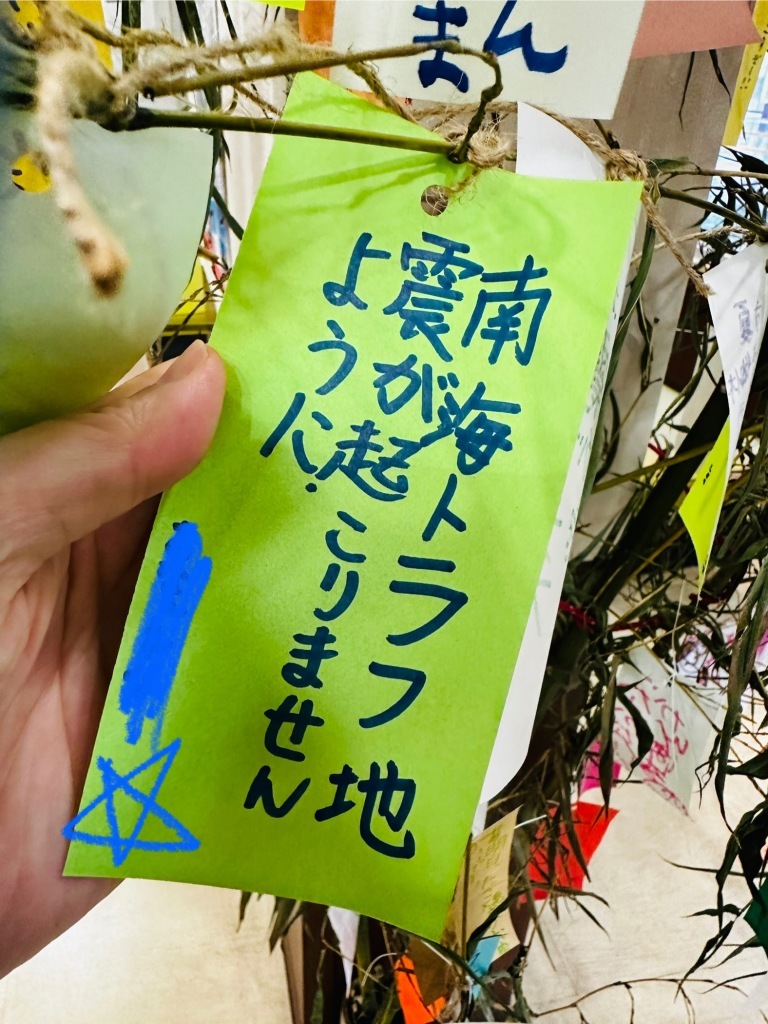 まん
南海トラフ地
震が起こりません
ように.